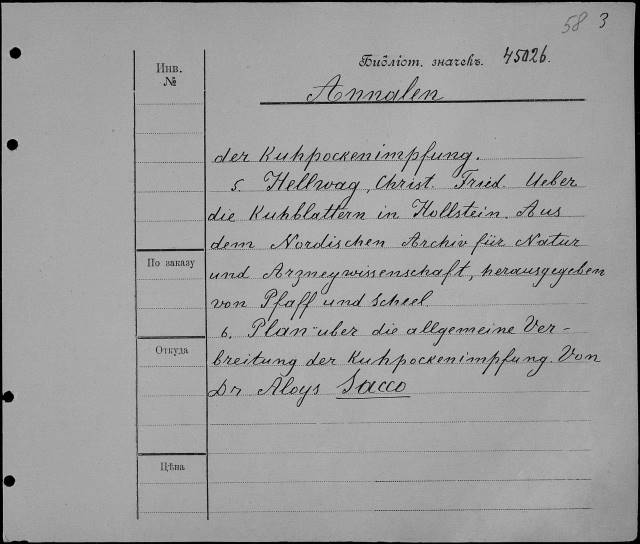 58 3
Инв.
№
Библіот. значекъ. 45026.
Annalen
der Kuhpockenimpfung.
5. Hellwag, Christ. Fried. Ueber
die Kuhblattern in Hollstein. Aus
dem Nordischen Archiv für Natur
По заказу
und Arzneywissenschaft, herausgegeben
von Pfaff und Scheel.
6. Plan über die allgemeine Ver-
Откуда
breitung der Kuhpockenimpfung. Von
Dr Aloys Sacco
Цѣна